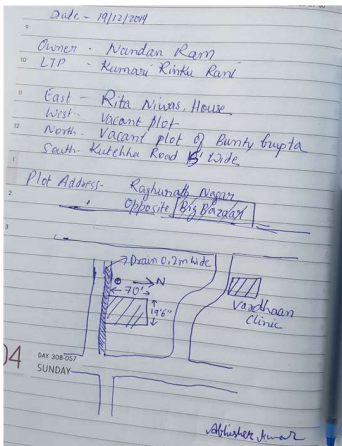 Date - 19/12/2019
Owner - Nandan Ram
LTP - Kumari Rinku Rani
East - Rita Niwas, House
West - Vacant plot
North - Vacant plot of Bunty Gupta
South - Kutchha Road 15' Wide
Plot Address - Raghunath Nagar
Opposite Big Bazaar
Drain 0.2m Wide
N
70'
19'6"
Vardhaan
Clinic
04
DAY 308-057
SUNDAY
Abhishek Kumar
9
10
11
12
1
2
3